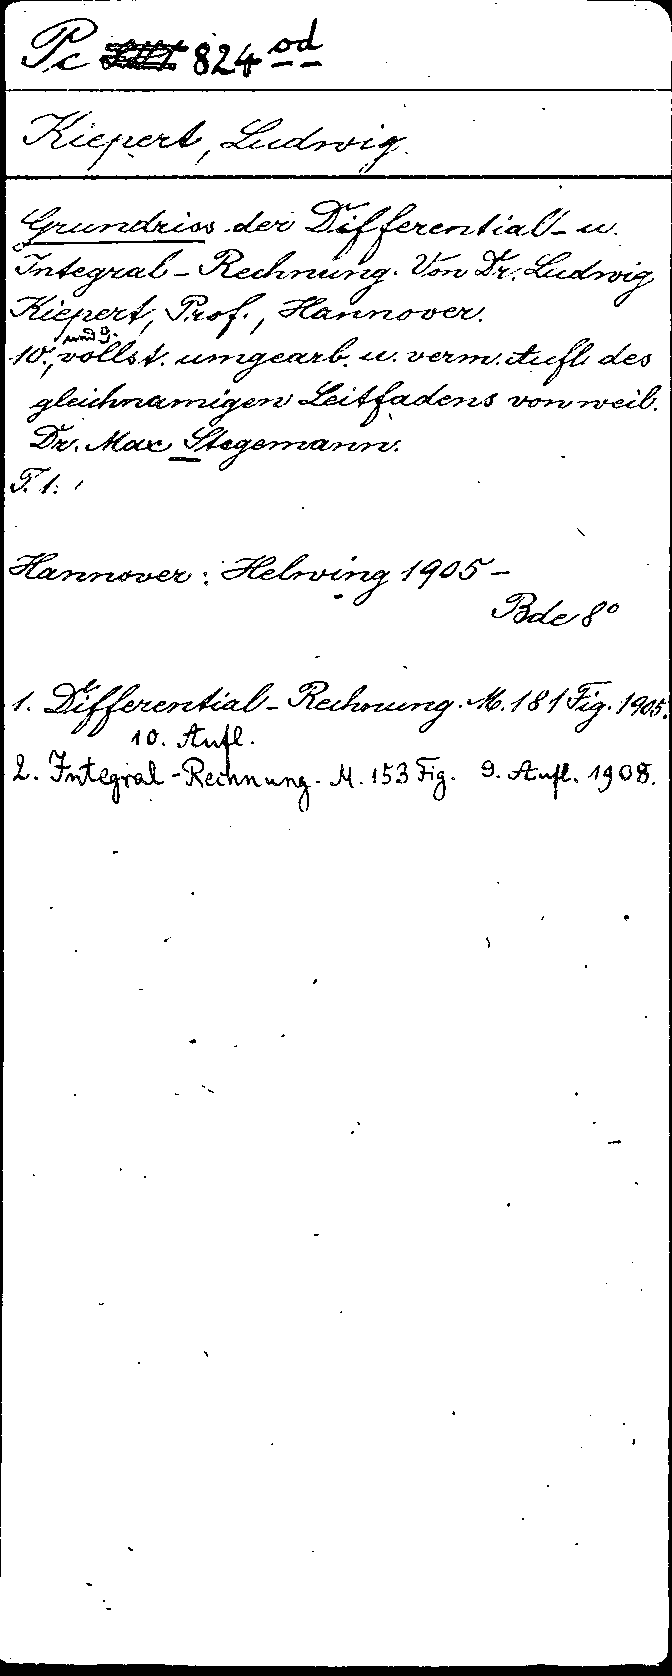 Pc 824 od
Kiepert, Ludwig.
Grundriss der Differential- u.
Integral-Rechnung. Von Dr. Ludwig
Kiepert, Prof., Hannover.
10., und 9. vollst. umgearb. u. verm. Aufl. des
gleichnamigen Leitfadens von weil.
Dr. Max Stegemann.
T. 1:
Hannover: Helwing 1905-
Bde 8°
1. Differential-Rechnung. M. 181 Fig. 1905.
10. Aufl.
2. Integral-Rechnung. M. 153 Fig. 9. Aufl. 1908.